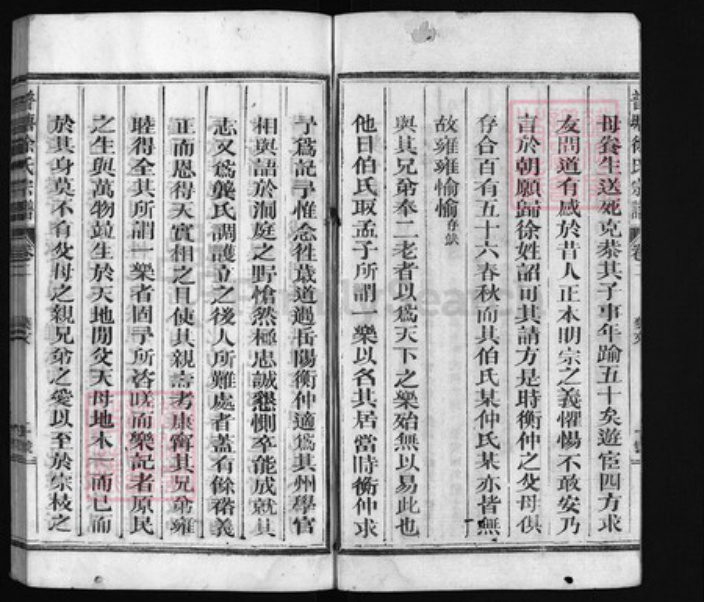 母養生送死克恭其子事年踰五十矣遊宦四方求
友問道有感於昔人正本明宗之義懼惕不敢安乃
言於朝願歸徐姓詔可其請方是時衡仲之父母俱
存合百有五十六春秋而其伯氏某仲氏某亦皆無
故雍雍愉愉存缺
與其兄弟奉二老者以爲天下之樂殆無以易此也
他日伯氏取孟子所謂一樂以名其居當時衡仲求
予爲記予惟念徃嵗道過岳陽衡仲適爲其州學官
相與語於洞庭之野愴然極忠誠懇惻卒能成就其
志又爲龔氏調護立之後人所難處者蓋有餘裕義
正而恩得天實相之且使其親壽考康寧其兄弟雍
睦得全其所謂一樂者固予所咨嗟而樂記者原民
之生與萬物並生於天地閒父天母地本一而已而
於其身莫不有父母之親兄弟之愛以至於宗枝之
徐氏宗譜
卷一